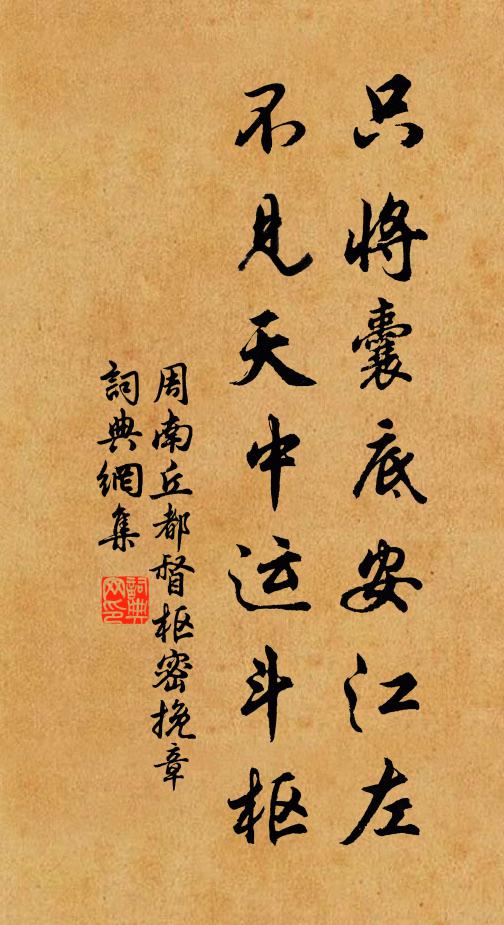 只将囊底安江左
不见天中运斗枢
周南丘都督枢密挽章
詞典網集
詞典网印